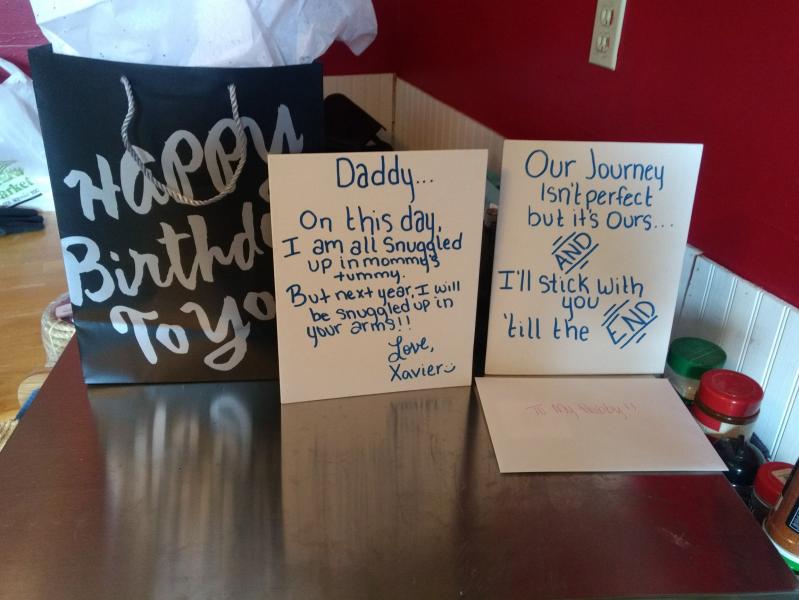 HAPPY
Birthday
To You
Daddy...
On this day,
I am all Snuggled
up in mommy's
tummy.
But next year, I will
be snuggled up in
your arms!!
Love,
Xavier
Our Journey
Isn't perfect
but it's Ours...
AND
I'll stick with
you
'till the END
To My Hubby!!
arket